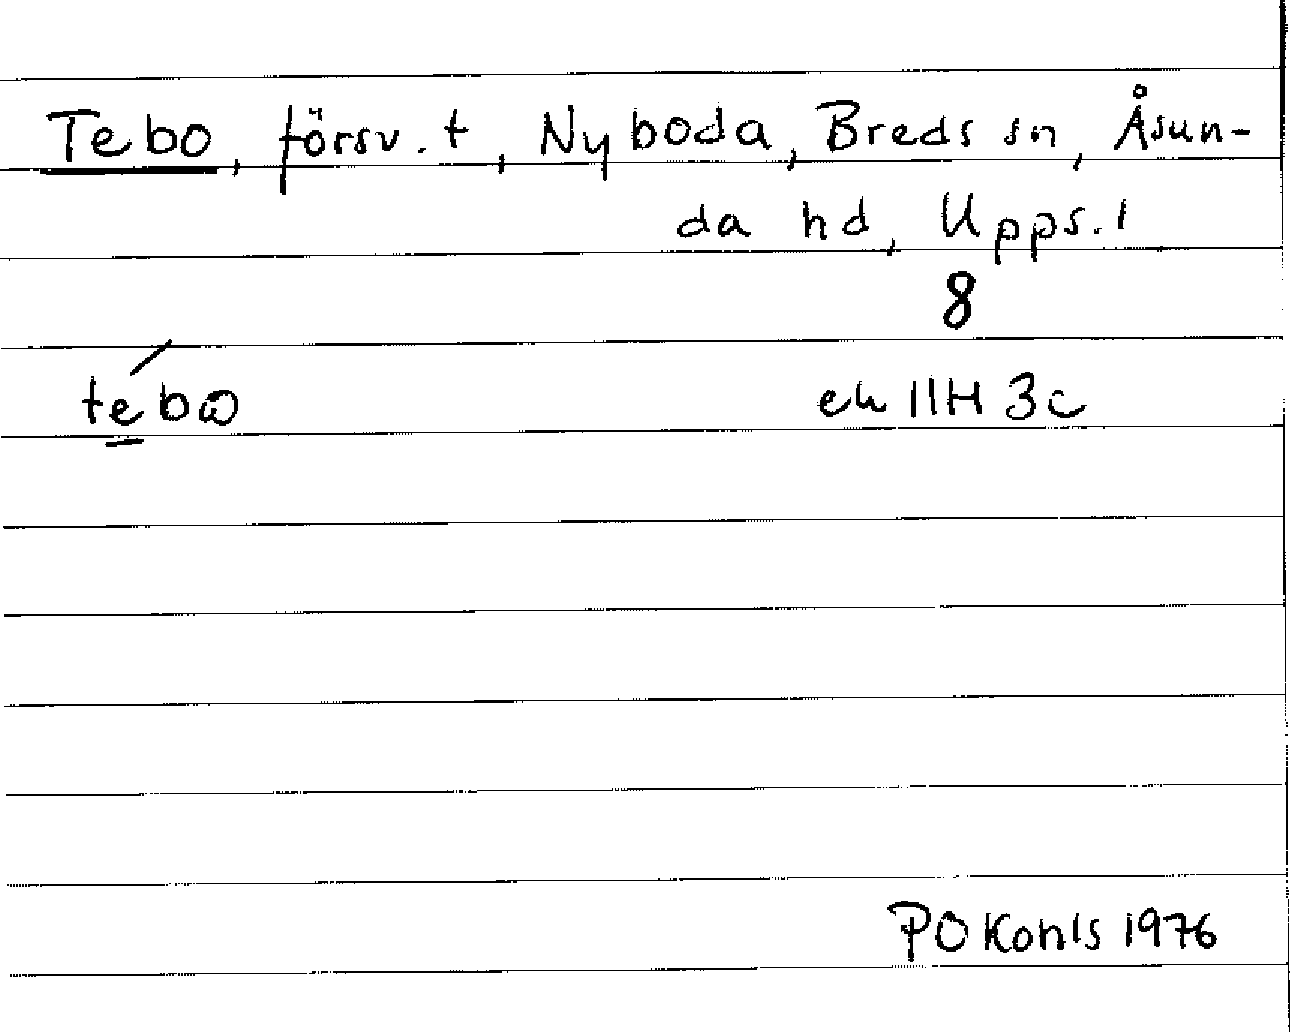 Tebo, försv. t, Nyboda, Breds sn, Åsun-
da hd, Upps. l
8
tebω
ek 11H 3c
PO Konls 1976